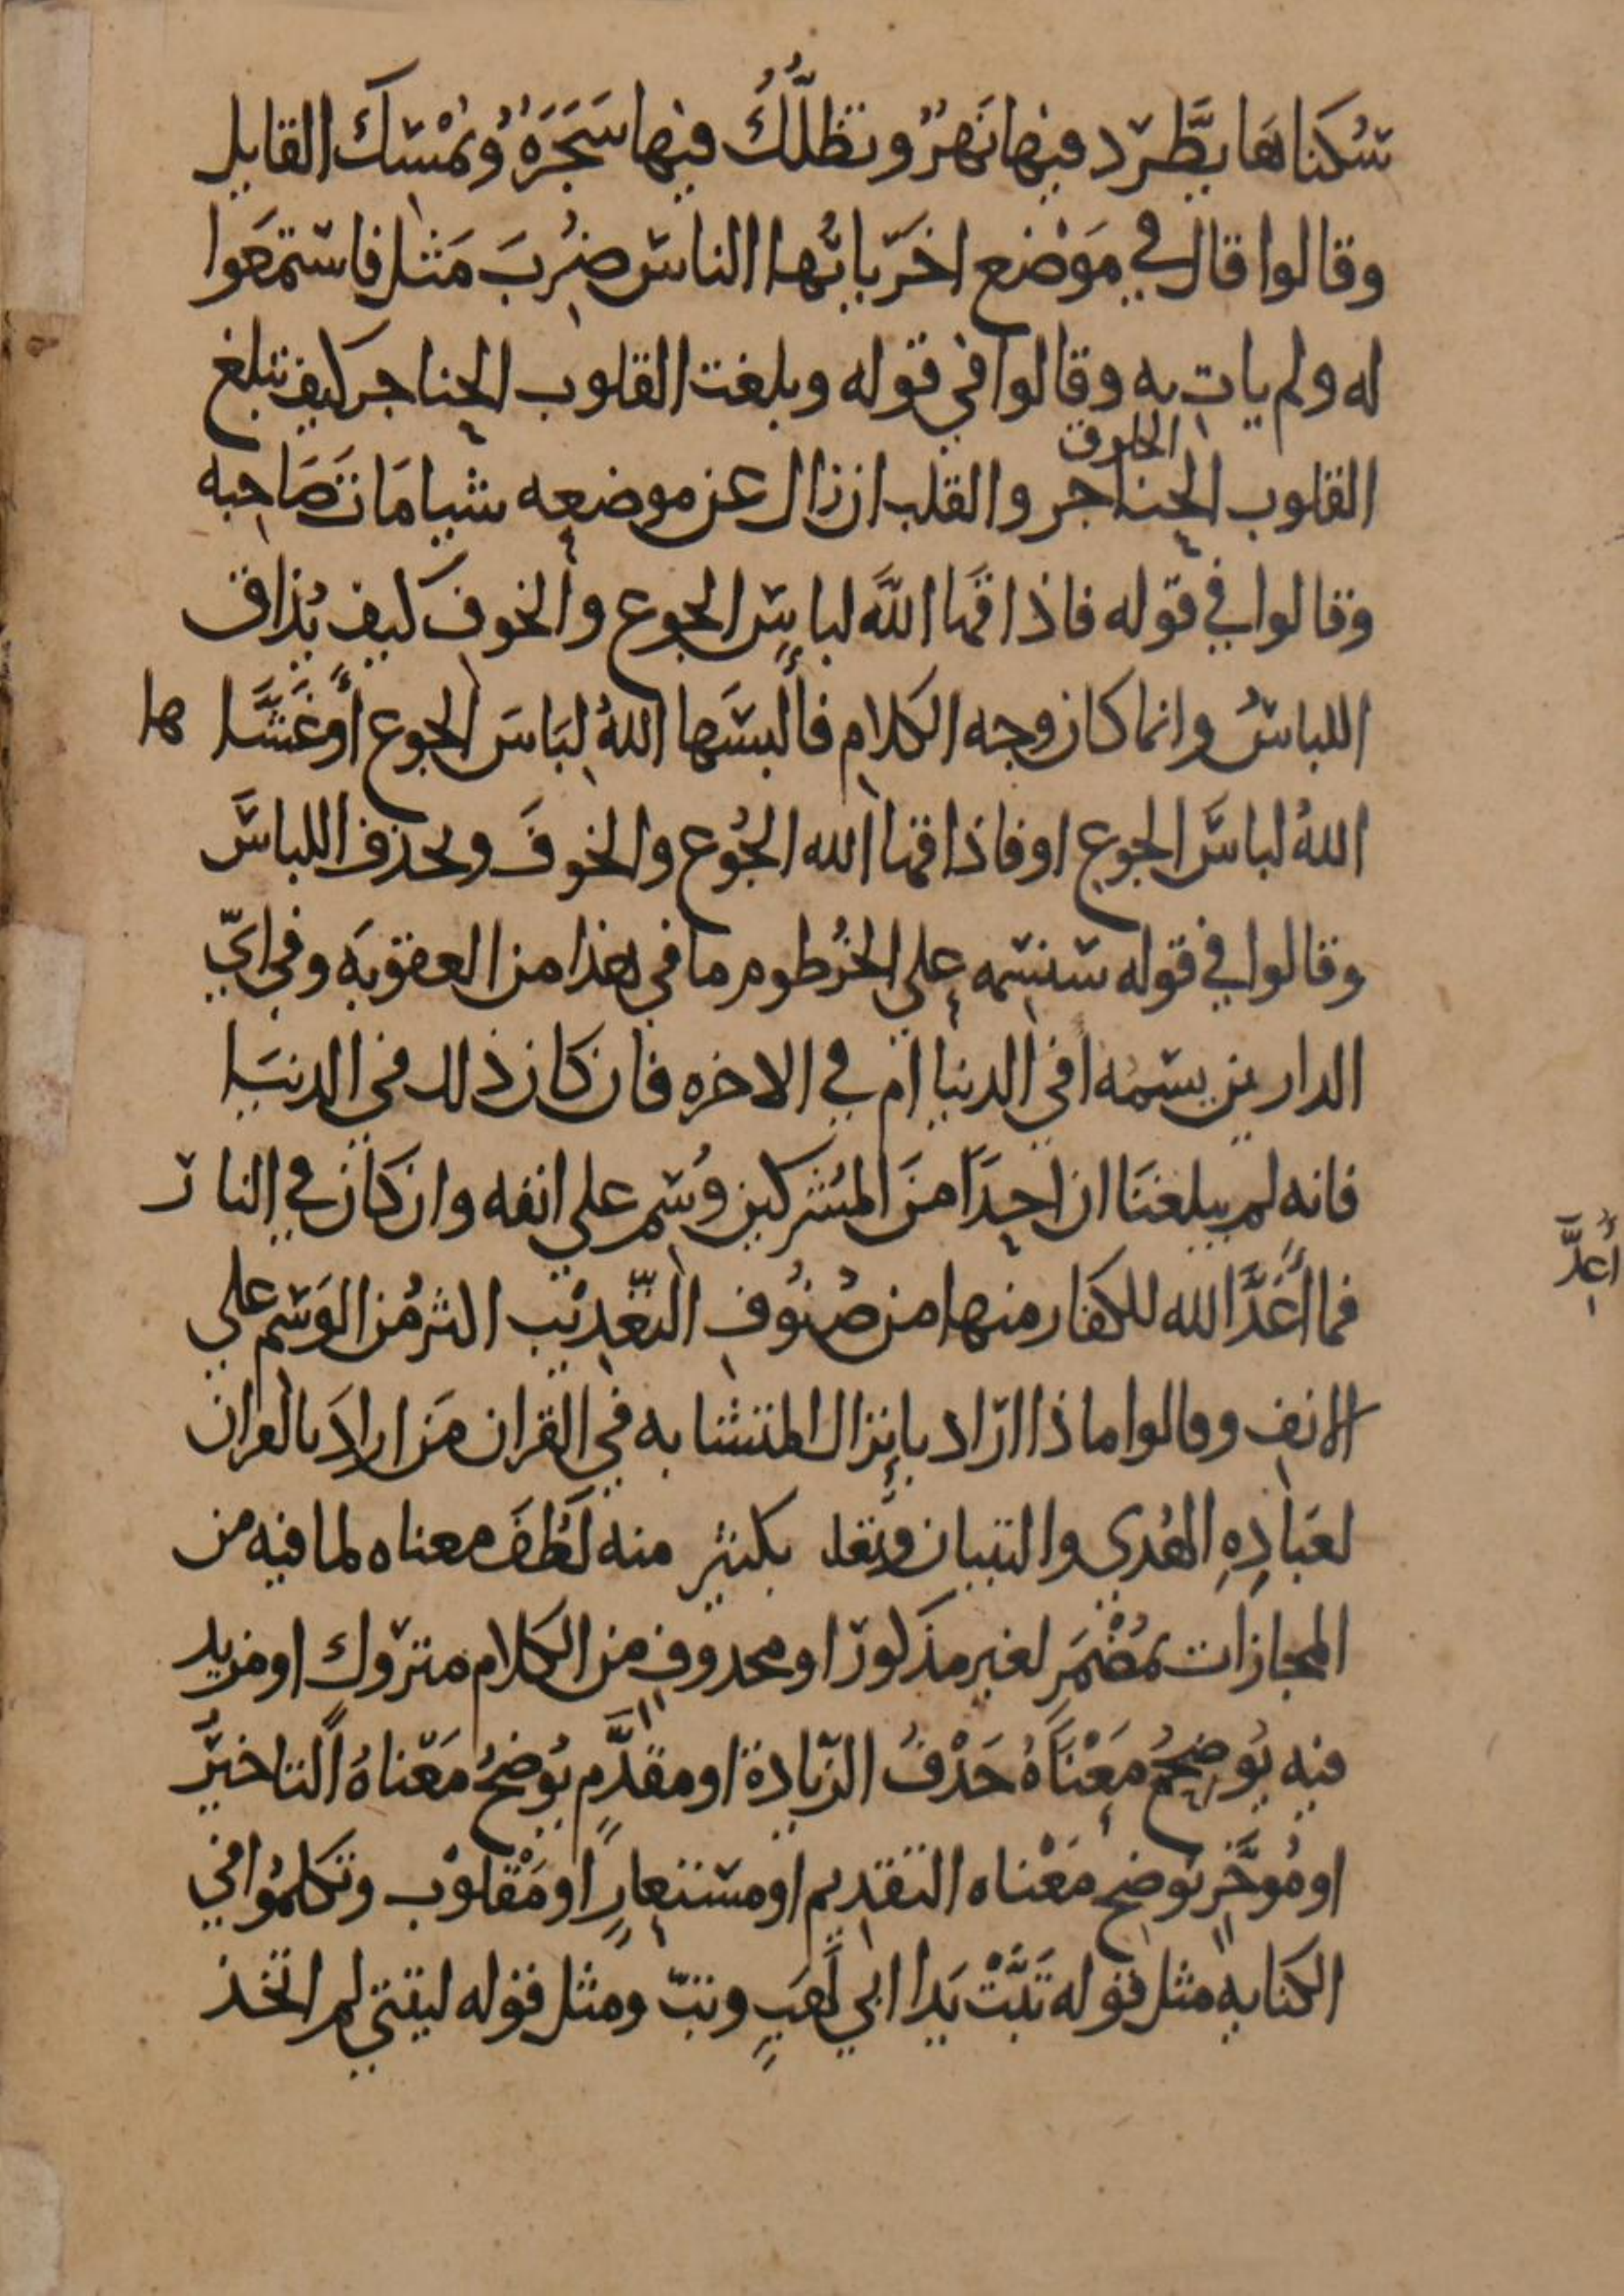 سُكناهَا يطَّرد فيها نَهرٌ وتظلُّكُ فيها شَجَرَةٌ وتمْسِك القايل
وقالوا قال في مَوْضع اخَر يا ايُّها الناس ضُرِبَ مَثل فاستمَعوا
له ولم يات به وقالوا في قوله وبلغت القلوب الحناجر كيف تبلغ
القلوب الحناجر والقلب ان زال عن موضعه شيا مَاتَ صَاحبه
الحلوق
وقالوا في قوله فاذاقهَا اللَّه لباسَ الجوع والخوف كيف يُذاق
اللباسُ وانما كان وجه الكلام فألبسَها اللهُ لِبَاسَ الجوع أو غَشَّاها
اللهُ لباسَ الجوع او فاذاقها الله الجُوع والخوفَ ويحذف اللباسَ
وقالوا في قوله سنسمه على الخُرطوم ما في هذا من العقوبَه وفي ايّ
الدارين يسمه افي الدنيا ام في الاخره فان كان ذلك في الدنيَا
فانه لم يبلغنَا ان احدًا منَ المشركين وُسِم علي انفه وان كان في النار
فما أَعَدَّ الله للكفار منها من صُنُوفِ التّعْذِيْب اكثر مُن الوَسم علي
أُعِدَّ
الانف وقالوا ماذا ارَاد بإنزال المتشابه في القران مَن ارادَ بالقران
لعبَادِهِ الهُدي والتبيان وتعلـ بكثير منه لَطُفَ معناه لما فيه من
المجازات بمُضْمَر لغير مذكور او محذوفٍ من الكلام متروك او مزيد
فيه يُوضِحُ مَعْنَاهُ حَذْفُ الزيادة او مقدَّمٍ يُوضحُ مَعناهُ التاخيرُ
او مُوخَّرٍ يوضح مَعْناه التقديم او مستعارٍ او مَقْلوْب وتكلمُوا في
الكنايه مثل قوله تَبَّتْ يَدا ابي لهَبٍ وتبّ ومثل قوله ليتني لم اتخذ